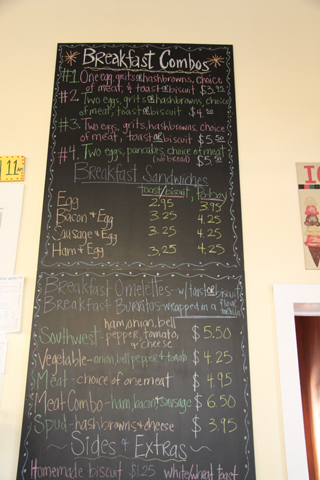 Breakfast Combos
#1. One egg, grits or hashbrowns, choice
of meat, & toast or biscuit $3.95
#2. Two eggs, grits or hashbrowns, choice
of meat, toast or biscuit $4.50
#3. Two eggs, grits, hashbrowns, choice
of meat, toast or biscuit $5.50
#4. Two eggs, pancakes, choice of meat
(no bread) $5.50
Breakfast Sandwiches
toast/biscuit
Egg 2.95 3.95
Bacon & Egg 3.25 4.25
Sausage & Egg 3.25 4.25
Ham & Egg 3.25 4.25
Breakfast Omelettes - w/ toast or biscuit
Breakfast Burritos - wrapped in a tortilla
Southwest - ham, onion, bell
pepper, tomato,
& cheese $5.50
Vegetable - onion, bell pepper & tomato $4.25
Meat - choice of one meat $4.95
Meat Combo - ham, bacon & sausage $6.50
Spud - hashbrowns & cheese $3.95
Sides & Extras
Homemade biscuit $1.25 white/wheat toast
11